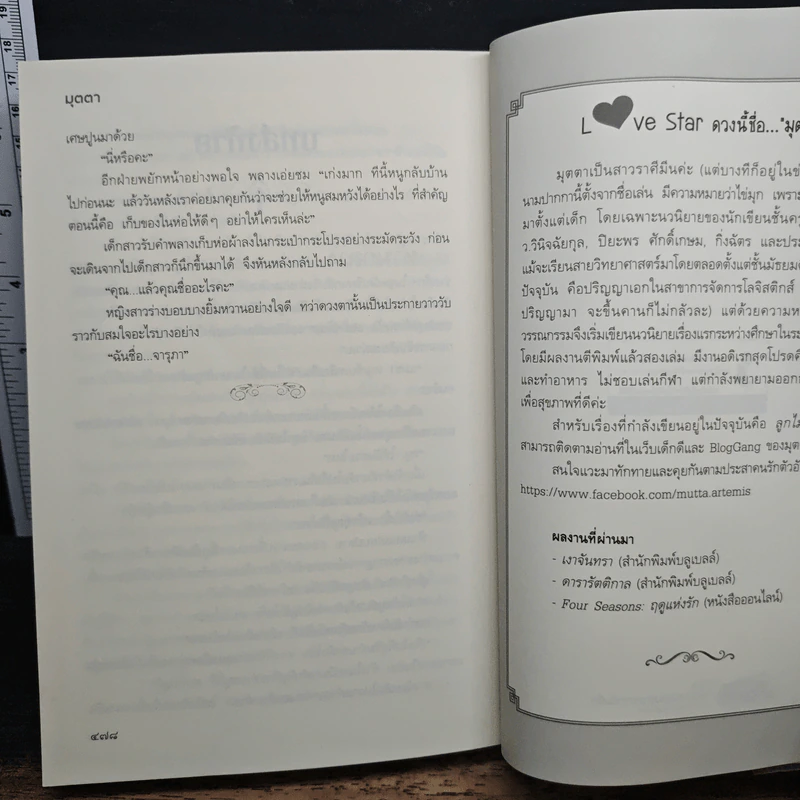 มุตตา
เศษปูนมาด้วย
“นี่หรือคะ”
อีกฝ่ายพยักหน้าอย่างพอใจ พลางเอ่ยชม “เก่งมาก ทีนี้หนูกลับบ้าน
ไปก่อนนะ แล้ววันหลังเราค่อยมาคุยกันว่าจะช่วยให้หนูสมหวังได้อย่างไร ที่สำคัญ
ตอนนี้คือ เก็บของในห่อให้ดีๆ อย่าให้ใครเห็นล่ะ”
เด็กสาวรับคำพลางเก็บห่อผ้าลงในกระเป๋ากระโปรงอย่างระมัดระวัง ก่อน
จะเดินจากไปเด็กสาวก็นึกขึ้นมาได้ จึงหันหลังกลับไปถาม
“คุณ...แล้วคุณชื่ออะไรคะ”
หญิงสาวร่างบอบบางยิ้มหวานอย่างใจดี ทว่าดวงตานั้นเป็นประกายวาววับ
ราวกับสมใจอะไรบางอย่าง
“ฉันชื่อ...จารุภา”
๔๗๘
L ve Star ดวงนี้ชื่อ... “มุต
มุตตาเป็นสาวราศีมีนค่ะ (แต่บางทีก็อยู่ใน
นามปากกานี้ตั้งจากชื่อเล่น มีความหมายว่าไข่มุก เพราะ
มาตั้งแต่เด็ก โดยเฉพาะนวนิยายของนักเขียนชั้นคร
ว.วินิจฉัยกุล, ปิยะพร ศักดิ์เกษม, กิ่งฉัตร และประ
แม้จะเรียนสายวิทยาศาสตร์มาโดยตลอดตั้งแต่ชั้นมัธยม
ปัจจุบัน คือปริญญาเอกในสาขาการจัดการโลจิสติกส์
ปริญญามา จะขึ้นคานก็ไม่กลัวละ) แต่ด้วยความ
วรรณกรรมจึงเริ่มเขียนนวนิยายเรื่องแรกระหว่างศึกษาใน
โดยมีผลงานตีพิมพ์แล้วสองเล่ม มีงานอดิเรกสุดโปรด
และทำอาหาร ไม่ชอบเล่นกีฬา แต่กำลังพยายามออก
เพื่อสุขภาพที่ดีค่ะ
สำหรับเรื่องที่กำลังเขียนอยู่ในปัจจุบันคือ ลูกไ
สามารถติดตามอ่านที่ในเว็บเด็กดีและ BlogGang ของมุต
สนใจแวะมาทักทายและคุยกันตามประสาคนรักตัวอั
https://www.facebook.com/mutta.artemis
ผลงานที่ผ่านมา
- เงาจันทรา (สำนักพิมพ์บลูเบลล์)
- ดารารัตติกาล (สำนักพิมพ์บลูเบลล์)
- Four Seasons: ฤดูแห่งรัก (หนังสือออนไลน์)